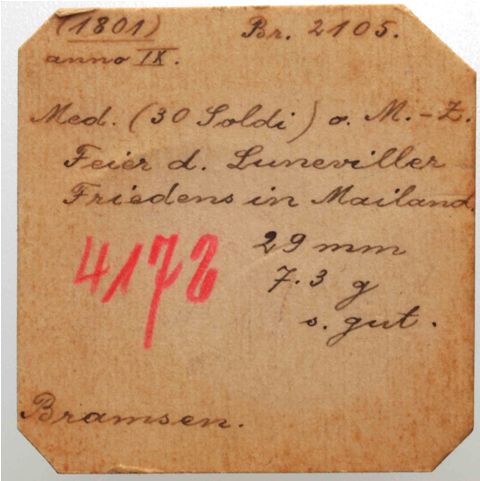 (1801) Br. 2105.
anno IX.
Med. (30 Soldi) o. M.-Z.
Feier d. Luneviller
Friedens in Mailand.
29 mm
4178 7.3 g
s. gut.
Bramsen.